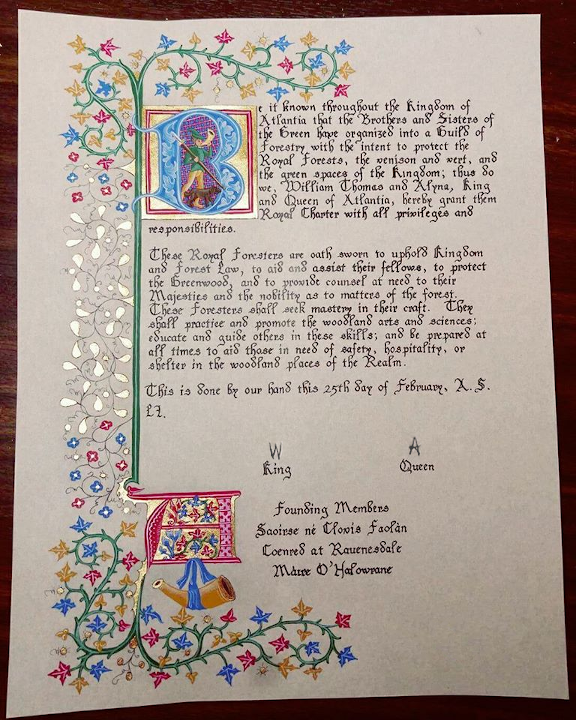 Be it known throughout the Kingdom of
Atlantia that the Brothers and Sisters of
the Green have organized into a Guild of
Forestry with the intent to protect the
Royal Forests, the venison and vert, and
the green spaces of the Kingdom; thus do
we, William Thomas and Alyna, King
and Queen of Atlantia, hereby grant them
Royal Charter with all privileges and
responsibilities.
These Royal Foresters are oath sworn to uphold Kingdom
and Forest Law, to aid and assist their fellows, to protect
the Greenwood, and to provide counsel at need to their
Majesties and the nobility as to matters of the forest.
These Foresters shall seek mastry in their craft. They
shall practice and promote the woodland arts and sciences;
educate and guide others in these skills; and be prepared at
all times to aid those in need of safety, hospitality, or
shelter in the woodland places of the Realm.
This is done by our hand this 25th day of February, A. S.
LI.
W A
King Queen
Founding Members
Saoirse né Clovis Faolàn
Coenred at Rauenesdale
Màire O'Halowrane